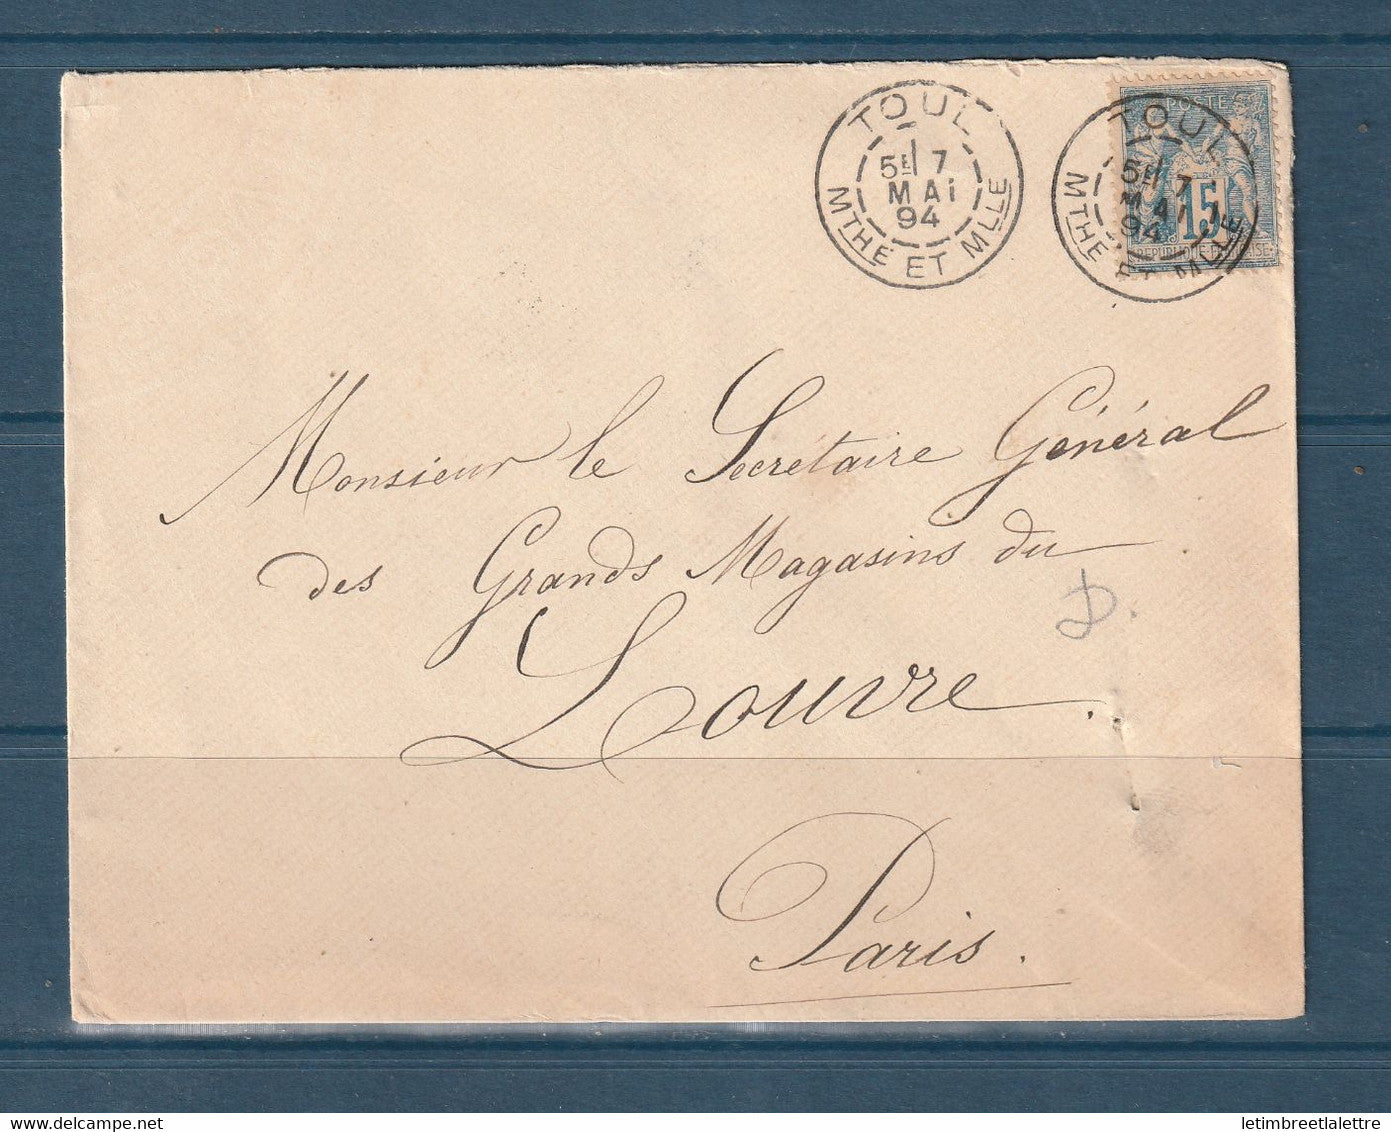 TOUL
5E 7
MAI
94
MTHE ET MLLE
TOUL
5E 7
MAI
94
MTHE ET MLLE
POSTE
15
REPUBLIQUE
Monsieur le Secrétaire Général
des Grands Magasins du
Louvre.
D.
Paris.
© delcampe.net
letimbreetlalettre